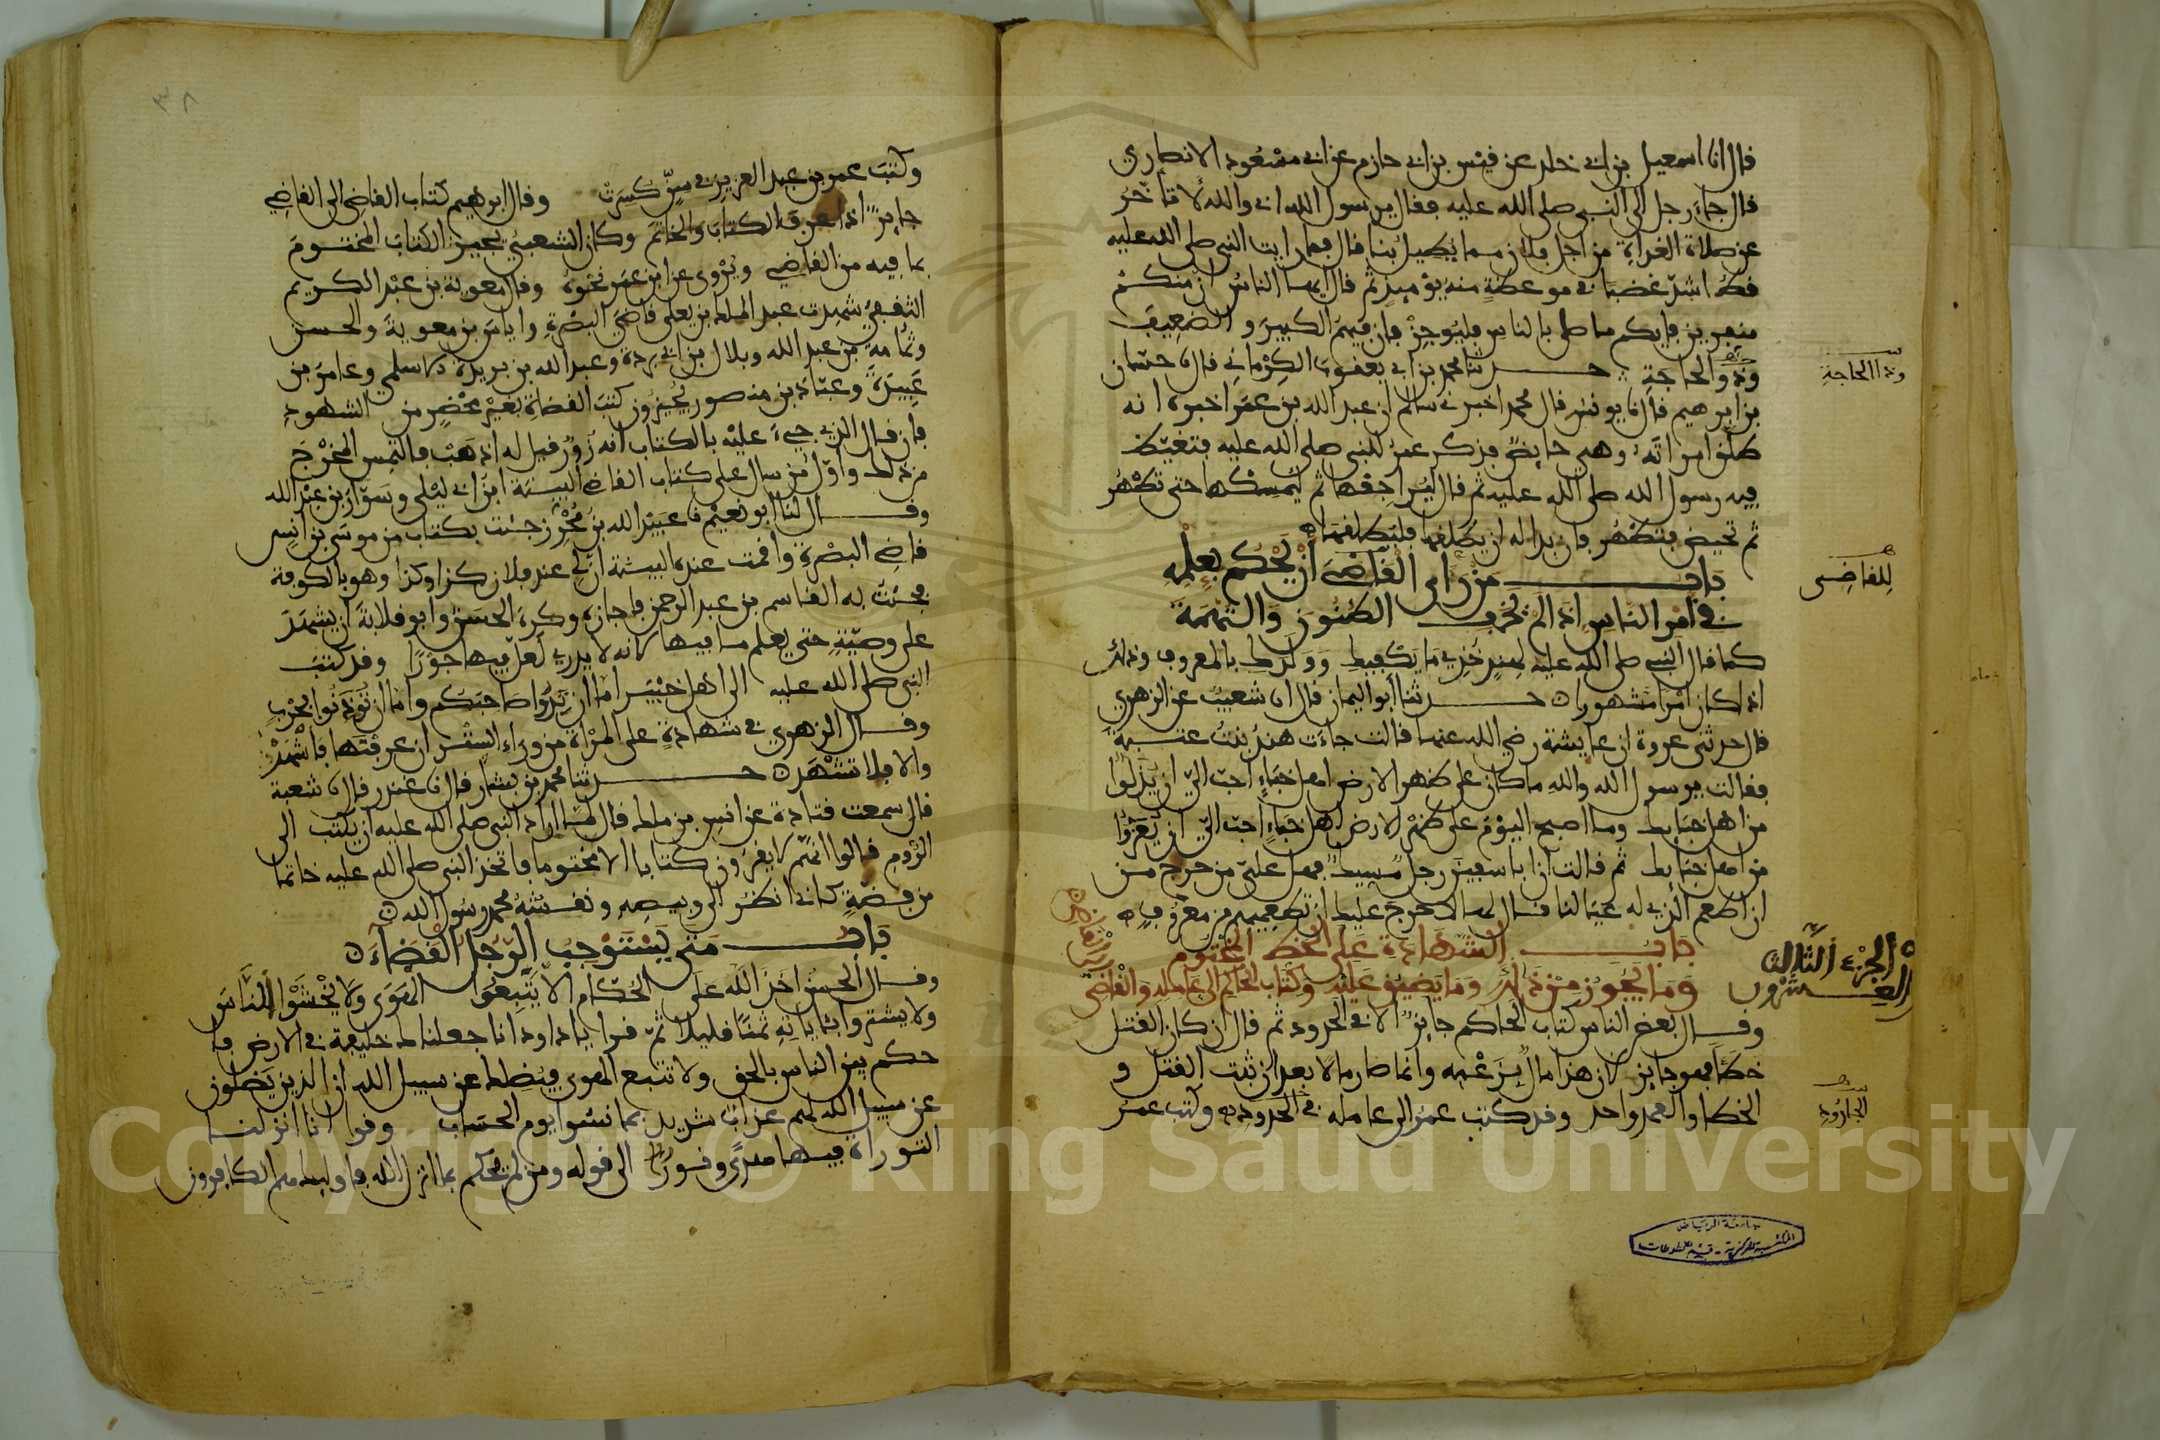 قال انا اسمعيل بن ابي خلد عن قيس بن ابي حازم عن ابي مسعود الانصاري
قال جاء رجل الى النبي صلى الله عليه فقال يرسول الله اني والله لاتأخر
عن صلاة الغداة من اجل فلان مما يطيل بنا قال فما رايت النبي صلى الله عليه
قط اشد غضبا في موعظة منه يومئذ ثم قال ايها الناس ان منكم
منفرين فايكم ما صلى بالناس فليوجز فان فيهم الكبير والضعيف
وذو الحاجة حدثنا محمد بن ابي يعقوب الكرماني قال نا حسان
وذا الحاجة
بن ابرهيم قال نا يونس قال محمد اخبرني سالم ان عبد الله بن عمر اخبره انه
طلق امراته وهي حايض فذكر عمر للنبي صلى الله عليه فتغيظ
فيه رسول الله صلى الله عليه ثم قال ليراجعها ثم ليمسكها حتى تطهر
ثم تحيض فتطهر فان بدا له ان يطلقها فليطلقها
باب من راى القاضي ان يحكم بعلمه
للقاضي
في امر الناس اذا لم يخف الظنون والتهمة
كما قال النبي صلى الله عليه لهند خذي ما يكفيك وولدك بالمعروف وذلك
اذا كان امرا مشهورا حدثنا ابو اليمان قال انا شعيب عن الزهري
قال حدثني عروة ان عايشة رضي الله عنها قالت جاءت هند بنت عتبة
فقالت يرسول الله والله ما كان على ظهر الارض اهل خباء احب الي ان يذلوا
من اهل خبايك وما اصبح اليوم على ظهر الارض اهل خباء احب الي ان يعزوا
من اهل خبايك ثم قالت ان ابا سفين رجل مسيك فهل علي من حرج من
ان اطعم الذي له عيالنا قال لها لا حرج عليك ان تطعميهم من معروف
باب الشهادة على الخط المختوم
الجزء الثالث
والعشرون
وما يجوز من ذلك وما يضيق عليه وكتاب الحاكم الى عامله والقاضي
وقال بعض الناس كتاب الحاكم جايز الا في الحدود ثم قال ان كان القتل
خطأ فهو جايز لان هذا مال بزعمه وانما صار مالا بعد ان ثبت القتل و
الخطا والعمد واحد وقد كتب عمر الى عامله في الحدود وكتب عمر
الجارود
جامعة الرياض
المكتبة المركزية - قسم المخطوطات
٣٨
وكتب عمر بن عبد العزيز في سن كسرت وقال ابرهيم كتاب القاضي الى القاضي
جايز اذا عرف الكتاب والخاتم وكان الشعبي يجيز الكتاب المختوم
بما فيه من القاضي ويروى عن ابن عمر نحوه وقال معوية بن عبد الكريم
الثقفي شهدت عبد الملك بن يعلى قاضي البصرة واياس بن معوية والحسن
وثمامة بن عبد الله وبلال بن ابي بردة وعبد الله بن بريدة الاسلمي وعامر بن
عبيدة وعباد بن منصور يجيزون كتب القضاة بغير محضر من الشهود
فان قال الذي جيء عليه بالكتاب انه زور قيل له اذهب فالتمس المخرج
من ذلك واول من سال على كتاب القاضي البينة ابن ابي ليلى وسوار بن عبد الله
وقال لنا ابو نعيم نا عبيد الله بن محرز جئت بكتاب من موسى بن انس
قاضي البصرة واقمت عنده البينة ان لي عند فلان كذا وكذا وهو بالكوفة
فجئت به القاسم بن عبد الرحمن فاجازه وكره الحسن وابو قلابة ان يشهد
على وصية حتى يعلم ما فيها لانه لا يدري لعل فيها جورا وقد كتب
النبي صلى الله عليه الى اهل خيبر اما ان تدوا صاحبكم واما ان توذنوا بحرب
وقال الزهري في شهادة على المراة من وراء الستر ان عرفتها فاشهد
والا فلا تشهد حدثنا محمد بن بشار قال نا غندر قال نا شعبة
قال سمعت قتادة عن انس بن ملك قال لما اراد النبي صلى الله عليه ان يكتب الى
الروم قالوا انهم لا يقرءون كتابا الا مختوما فاتخذ النبي صلى الله عليه خاتما
من فضة كاني انظر الى وبيصه ونقشه محمد رسول الله
باب متى يستوجب الرجل القضاء
وقال الحسن اخذ الله على الحكام الا يتبعوا الهوى ولا يخشوا الناس
ولا يشتروا باياته ثمنا قليلا ثم قرا ياداود انا جعلناك خليفة في الارض فا
حكم بين الناس بالحق ولا تتبع الهوى فيضلك عن سبيل الله ان الذين يضلون
عن سبيل الله لهم عذاب شديد بما نسوا يوم الحساب وقرا انا انزلنا
التوراة فيها هدى ونور الى قوله ومن لم يحكم بما انزل الله فاوليك هم الكافرون
Copyright © King Saud University